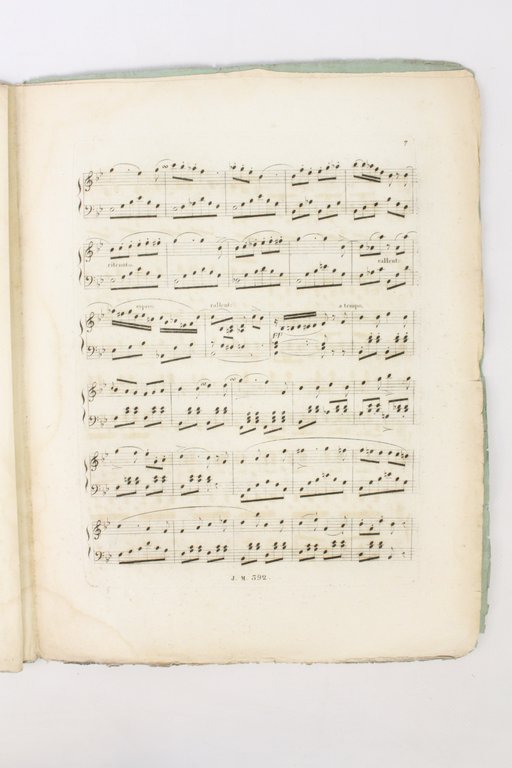 7
ritenuto. rallent.
espress. rallent.
a tempo.
J. M. 592.